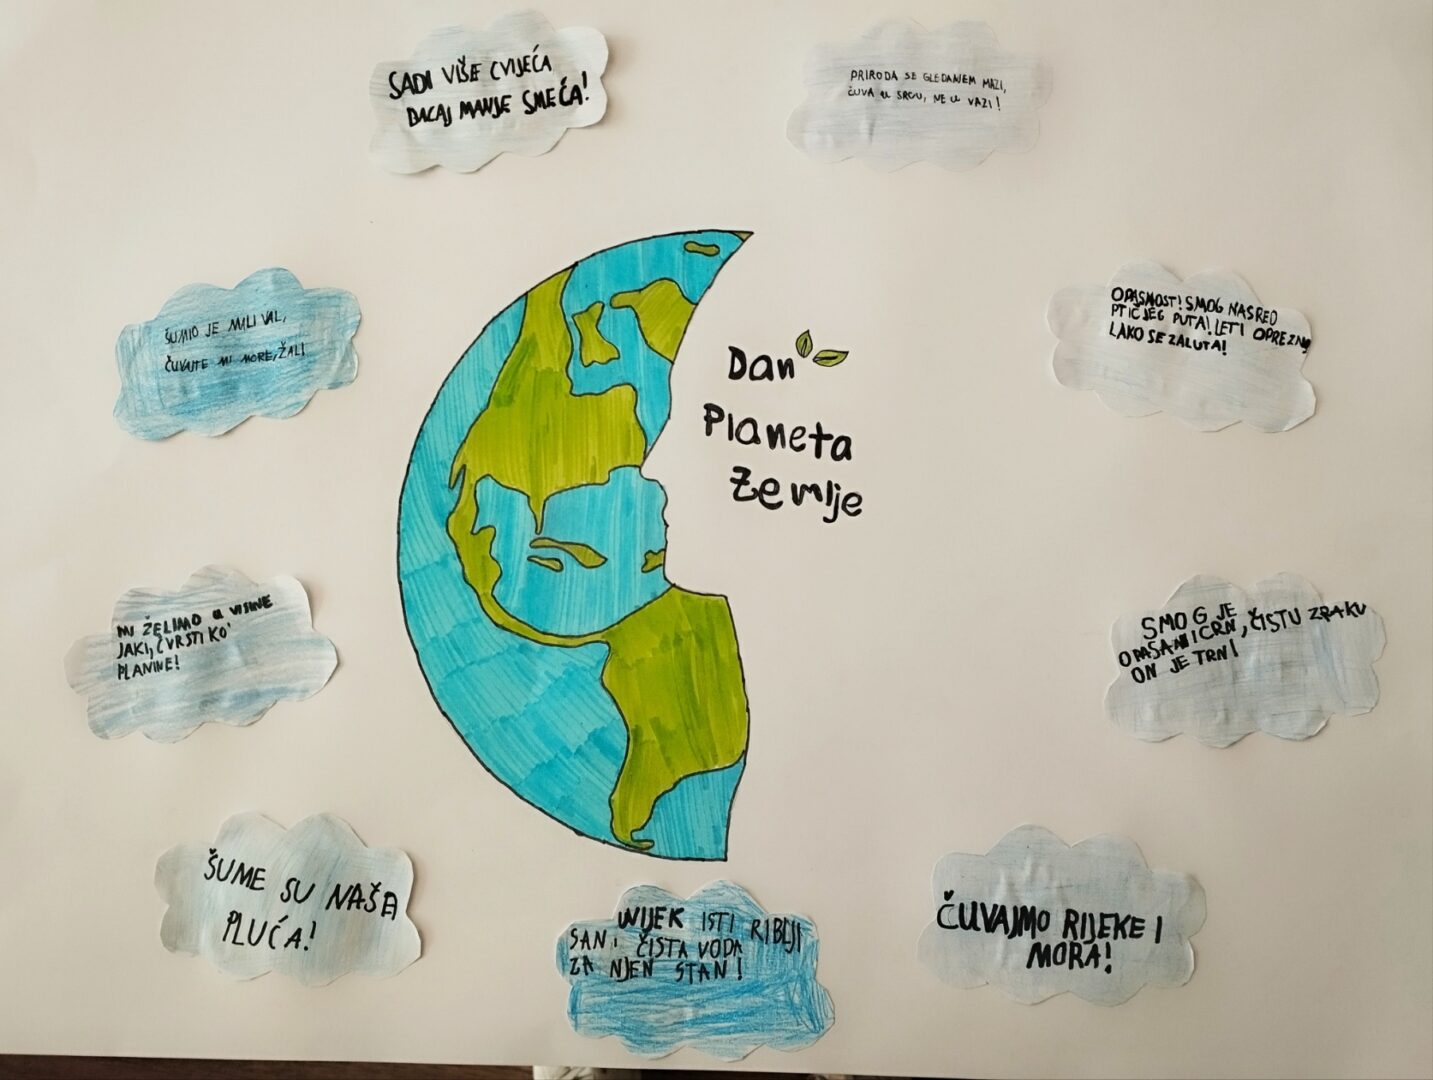 SADI VIŠE CVIJEĆA
BACAJ MANJE SMEĆA!
PRIRODA SE GLEDANJEM MAZI,
ČUVA U SRCU, NE U VAZI!
ŠUMIO JE MALI VAL,
ČUVAJTE MI MORE, ŽAL!
OPASNOST! SMOG NASRED
PTIČJEG PUTA! LETI OPREZNO
LAKO SE ZALUTA!
Dan
Planeta
Zemlje
MI ŽELIMO U VISINE
JAKI, ČVRSTI KO'
PLANINE!
SMOG JE
OPASAN I CRN, ČISTU ZRAKU
ON JE TRN!
ŠUME SU NAŠA
PLUĆA!
UVIJEK ISTI RIBLJI
SAN: ČISTA VODA
ZA NJEN STAN!
ČUVAJMO RIJEKE I
MORA!